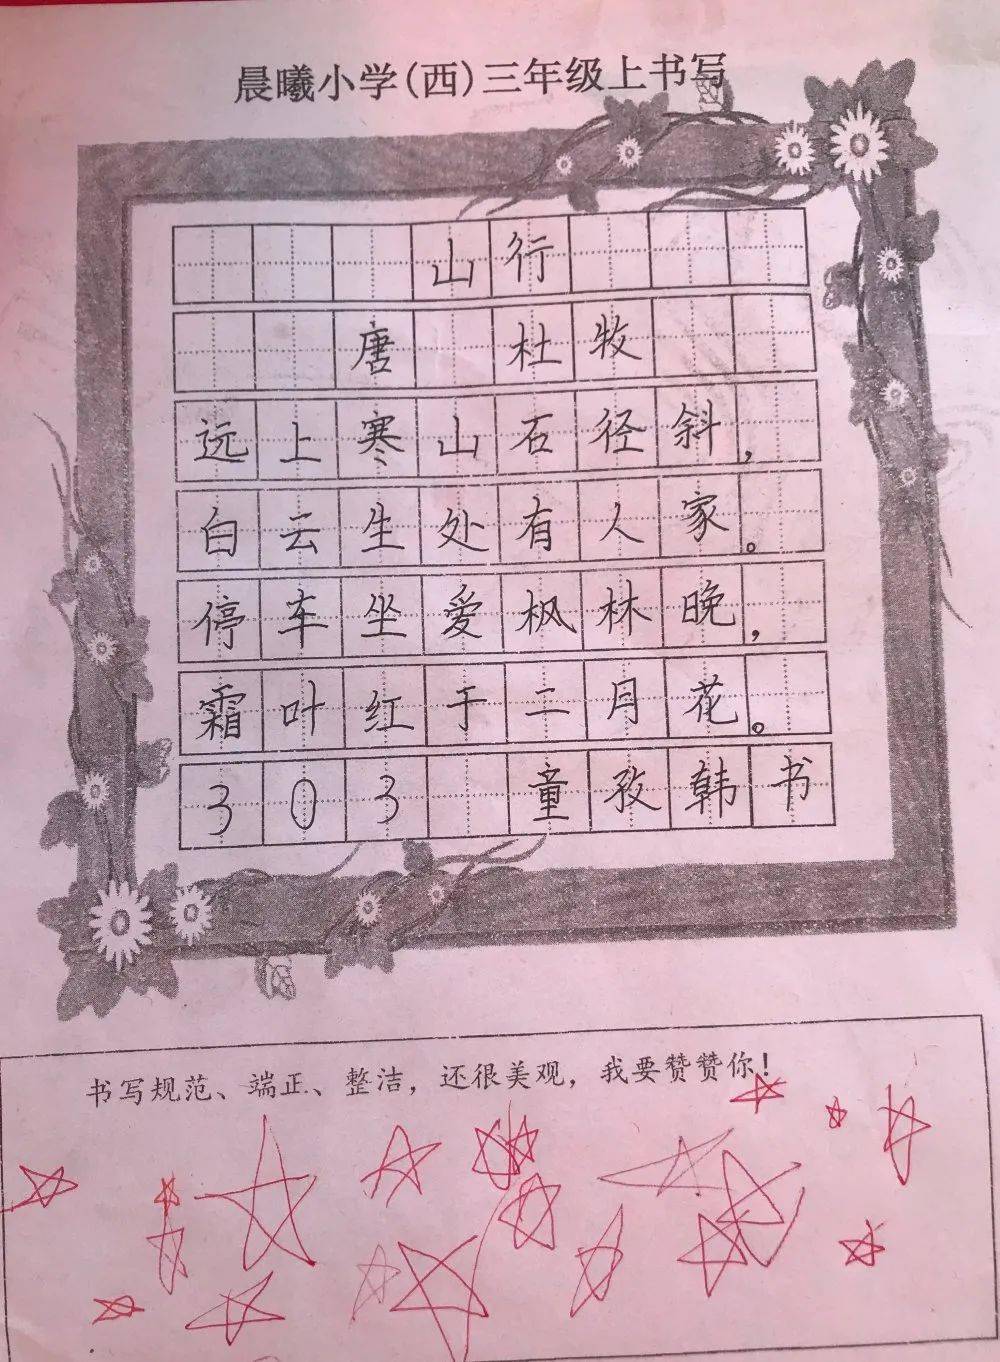 晨曦小学(西)三年级上书写
山行
唐 杜牧
远上寒山石径斜，
白云生处有人家。
停车坐爱枫林晚，
霜叶红于二月花。
303 童孜韩书
书写规范、端正、整洁，还很美观，我要赞赞你！